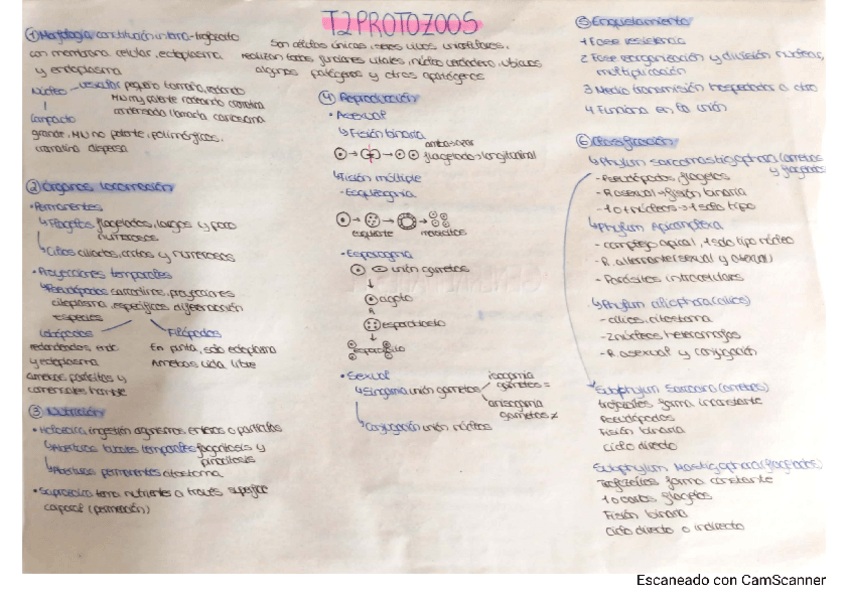 T2 PROTOZOOS
Son células únicas, seres vivos unicelulares,
realizan todas funciones vitales, núcleo verdadero, ubicuos
algunos patógenos y otros apatógenos
① Morfología constitución interna-trofozoito
con membrana celular, ectoplasma
y endoplasma
Núcleo - vesicular pequeño tamaño, redondo
compacto
grande, MN no patente, polimórficos,
cromatina dispersa
② Órganos locomoción
• Permanentes
↳ Flagelos flagelados, largos y poco
numerosos
↳ Cilios ciliados, cortos y numerosos
• Proyecciones temporales
↳ Pseudópodos sarcodinos, proyecciones
citoplasma, específicos diferenciación
especies
Lobópodos
redondeados, endo
y ectoplasma
amebas parásitas y
comensales hombre
Filópodos
En punta, solo ectoplasma
Amebas vida libre
③ Nutrición
• Holozoica ingestión organismos enteros o partículas
↳ Aberturas bucales temporales fagocitosis y
pinocitosis
↳ Aberturas permanentes citostoma
• Saprozoica toma nutrientes a través superficie
corporal (permeación)
④ Reproducción
• Asexual
↳ Fisión binaria
flagelado → longitudinal
↳ Fisión múltiple
- Esquizogonia
esquizonte
merozoitos
- Esporogonia
unión gametos
cigoto
esporoblasto
esporozoito
• Sexual
↳ Singamia unión gametos
isogamia
gametos =
anisogamia
gametos ≠
↳ Conjugación unión núcleos
⑤ Enquistamiento
1 Fase resistencia
2 Fase reorganización y división nuclear,
multiplicación
3 Medio transmisión hospedador a otro
4 Funciona en la unión
⑥ Clasificación
↳ Phylum sarcomastigophora (amebas
y flagelados)
- Pseudópodos, flagelos
- R asexual → fisión binaria
- 1 o + núcleos → 1 solo tipo
↳ Phylum Apicomplexa
- complejo apical, 1 solo tipo núcleo
- R. alternante sexual y asexual
- Parásitos intracelulares
↳ Phylum ciliophora (cilios)
- cilios, citostoma
- 2 núcleos heteromorfos
- R asexual y conjugación
Subphylum Sarcodina (amebas)
trofozoítos forma inconstante
Pseudópodos
Fisión binaria
Ciclo directo
Subphylum Mastigophora (flagelados)
Trofozoítos forma constante
1 o varios flagelos
Fisión binaria
Ciclo directo o indirecto
Escaneado con CamScanner